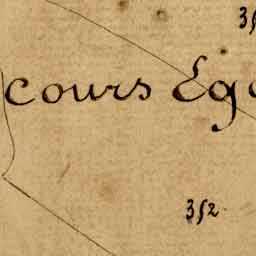 cours Eg
352